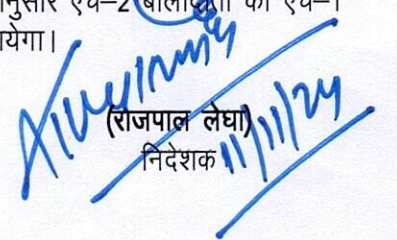 नुसार एच-2 बोलीदाता को एच-1
येगा।
(राजपाल लेघा)
निदेशक 11/11/24